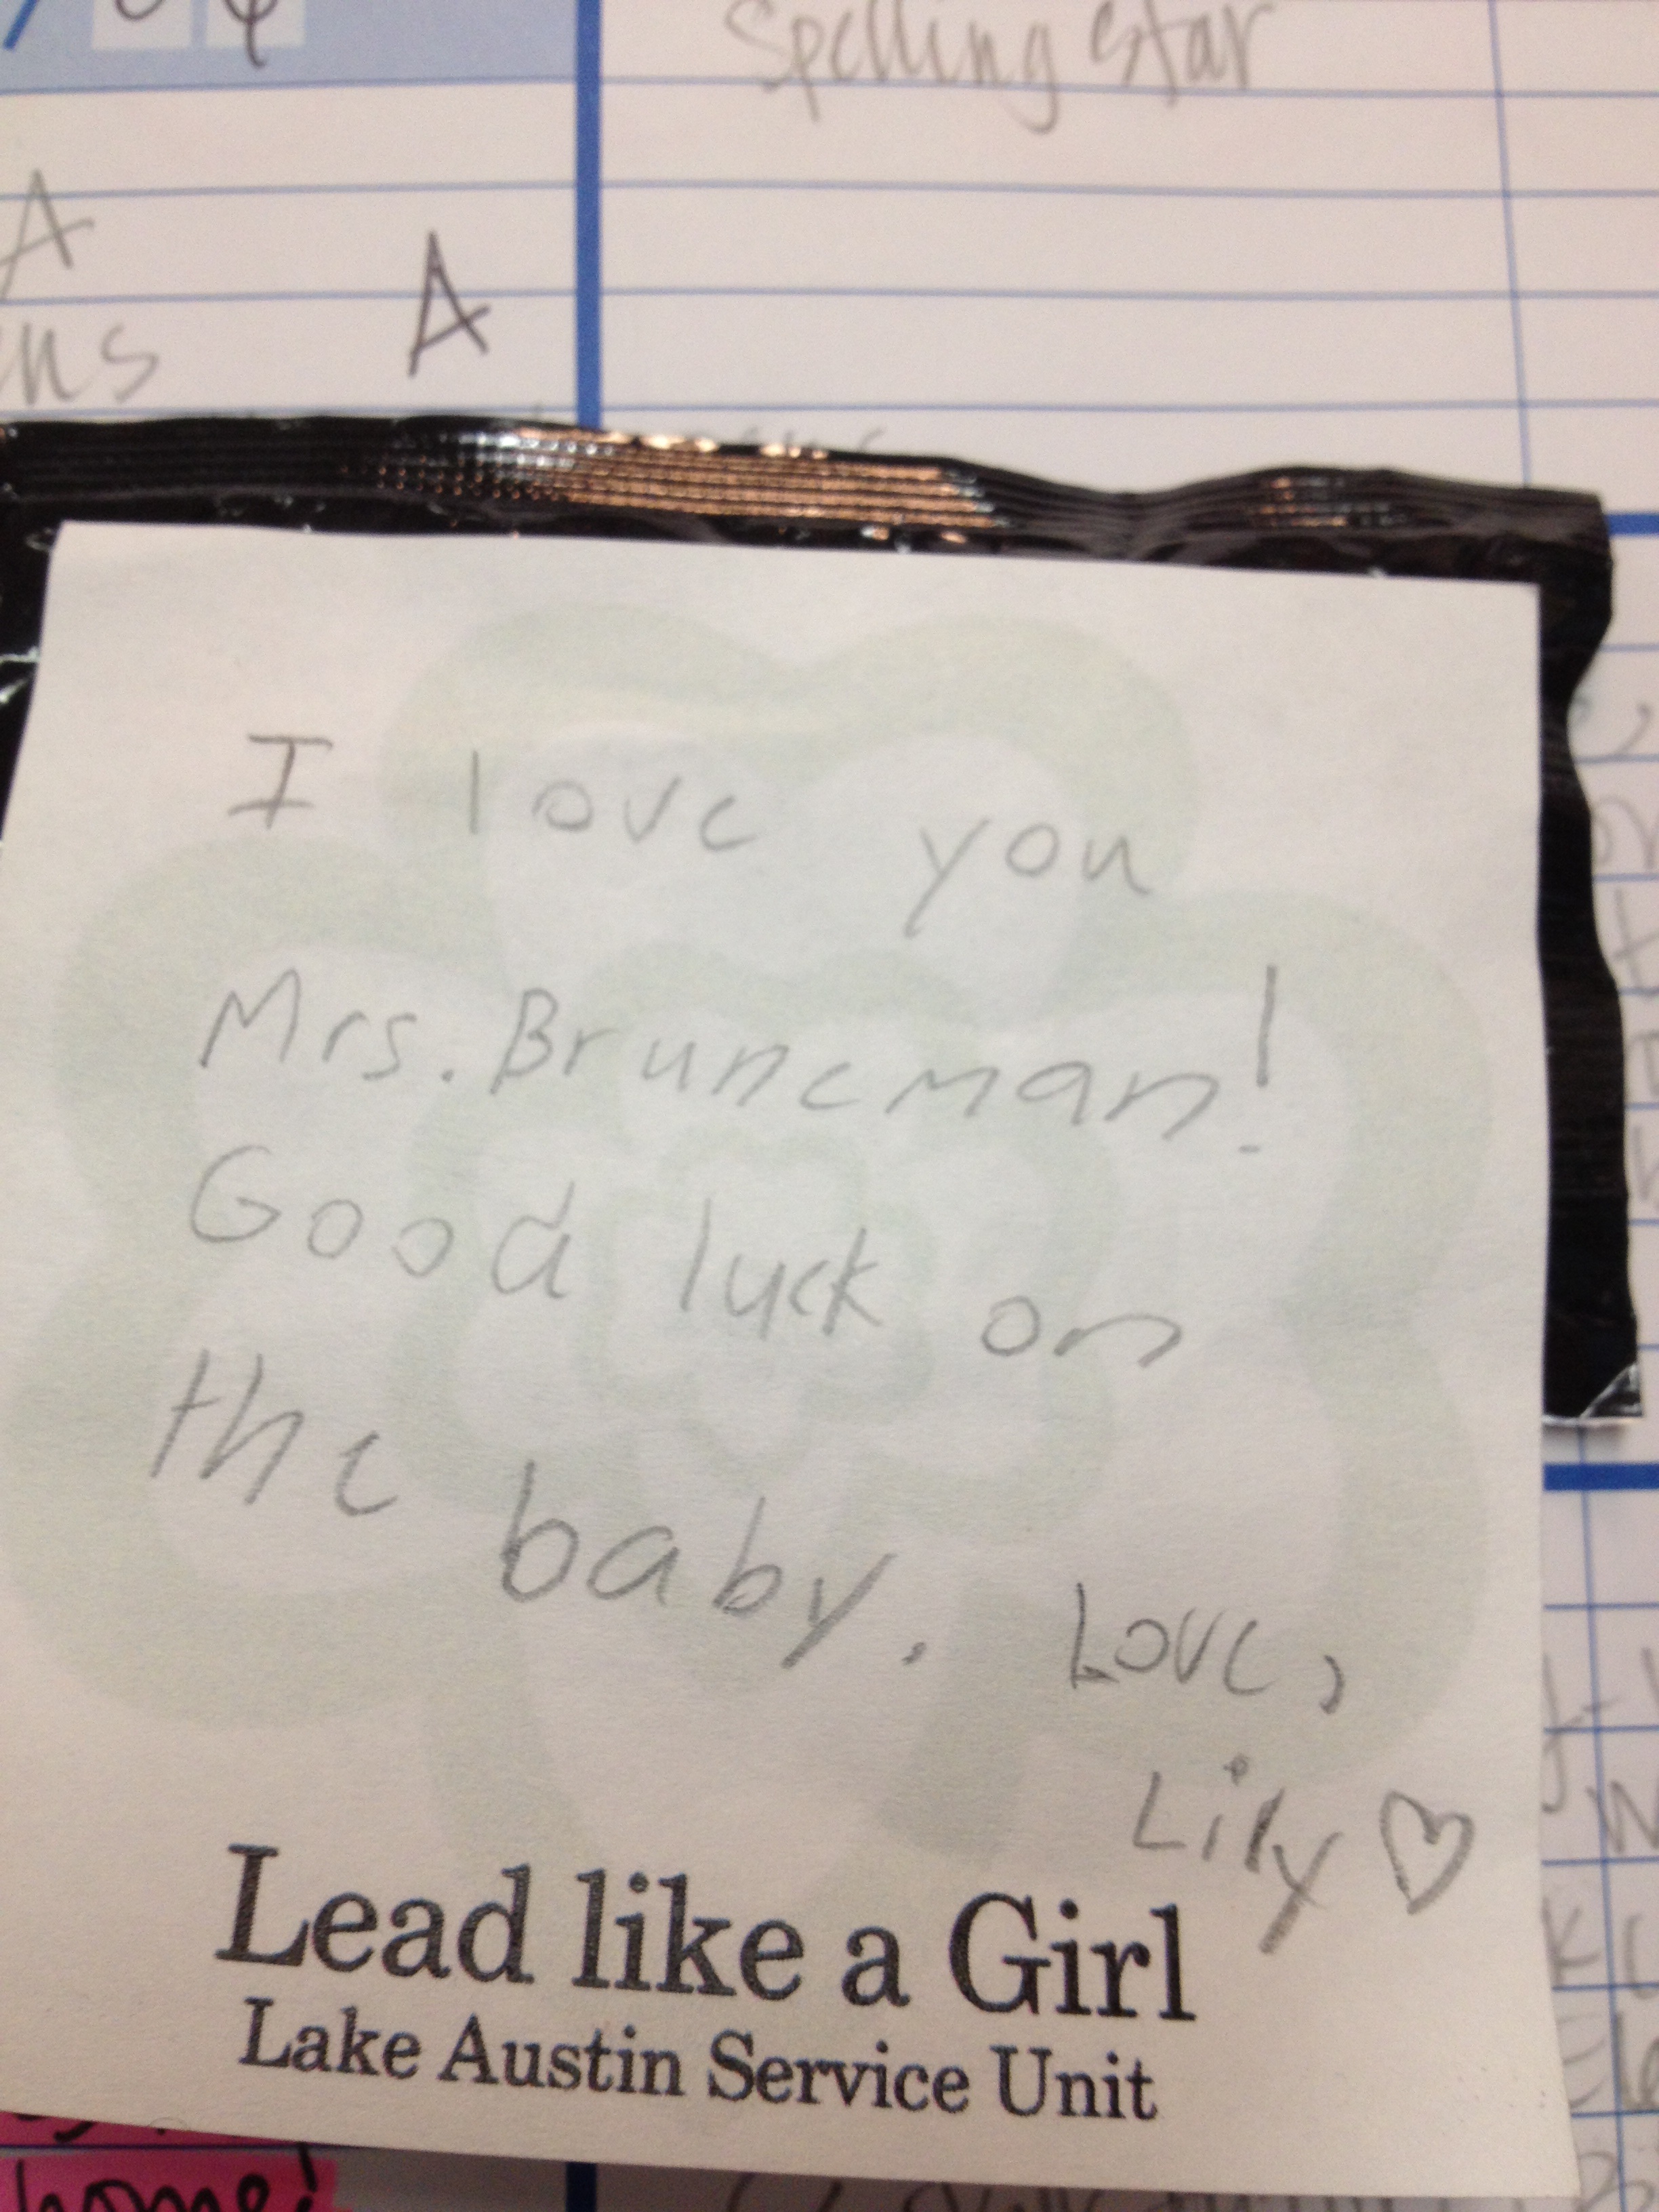 Spelling Star
A
A
I love you
Mrs. Bruneman!
Good luck on
the baby. Love,
Lily
Lead like a Girl
Lake Austin Service Unit
home!